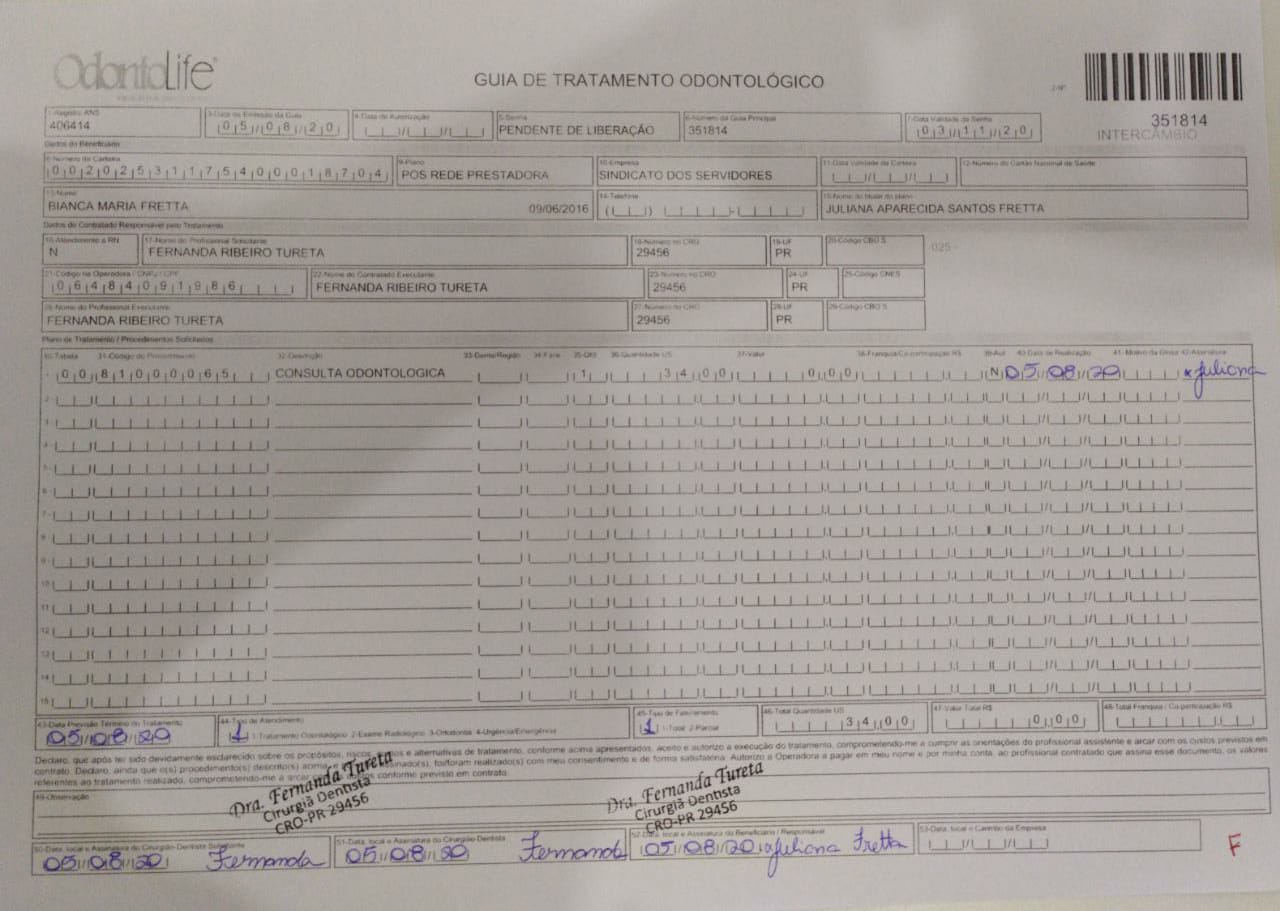 OdontoLife®
GUIA DE TRATAMENTO ODONTOLÓGICO
2-Nº
351814
INTERCÂMBIO
1-Registro ANS
406414
3-Data de Emissão da Guia
05/08/20
4-Data de Autorização
5-Senha
PENDENTE DE LIBERAÇÃO
6-Número da Guia Principal
351814
7-Data Validade da Senha
03/11/20
Dados do Beneficiário
8-Número da Carteira
00202531175400018704
9-Plano
POS REDE PRESTADORA
10-Empresa
SINDICATO DOS SERVIDORES
11-Data Validade da Carteira
12-Número do Cartão Nacional de Saúde
13-Nome
BIANCA MARIA FRETTA 09/06/2016
14-Telefone
15-Nome do titular do plano
JULIANA APARECIDA SANTOS FRETTA
Dados do Contratado Responsável pelo Tratamento
16-Atendimento a RN
N
17-Nome do Profissional Solicitante
FERNANDA RIBEIRO TURETA
18-Número no CRO
29456
19-UF
PR
20-Código CBO S
025 -
21-Código na Operadora / CNPJ / CPF
06484091986
22-Nome do Contratado Executante
FERNANDA RIBEIRO TURETA
23-Número no CRO
29456
24-UF
PR
25-Código CNES
26-Nome do Profissional Executante
FERNANDA RIBEIRO TURETA
27-Número no CRO
29456
28-UF
PR
29-Código CBO S
Plano de Tratamento / Procedimentos Solicitados
30-Tabela 31-Código do Procedimento 32-Descrição 33-Dente/Região 34-Face 35-Qtd 36-Quantidade US 37-Valor 38-Franquia/Co-participação R$ 39-Aut 40-Data de Realização 41-Motivo da Glosa 42-Assinatura
1- 00 81000065 CONSULTA ODONTOLOGICA 1 34 00 0 00 N 05/08/20 Juliana
2-
3-
4-
5-
6-
7-
8-
9-
10-
11-
12-
13-
14-
15-
43-Data Previsão Término do Tratamento
05/08/20
44-Tipo de Atendimento
1 1-Tratamento Odontológico 2-Exame Radiológico 3-Ortodontia 4-Urgência/Emergência
45-Tipo de Faturamento
1 1-Total 2-Parcial
46-Total Quantidade US
34 00
47-Valor Total R$
0 00
48-Total Franquia / Co-participação R$
Declaro, que após ter sido devidamente esclarecido sobre os propósitos, riscos, e alternativas de tratamento, conforme acima apresentados, aceito e autorizo a execução do tratamento, comprometendo-me a cumprir as orientações do profissional assistente e arcar com os custos previstos em
contrato. Declaro, ainda que o(s) procedimento(s) descrito(s) acima, e assinado(s), foi/foram realizado(s) com meu consentimento e de forma satisfatória. Autorizo a Operadora a pagar em meu nome e por minha conta, ao profissional contratado que assina esse documento, os valores
referentes ao tratamento realizado, comprometendo-me a arcar conforme previsto em contrato.
49-Observação
Dra. Fernanda Tureta
Cirurgiã Dentista
CRO-PR 29456
Dra. Fernanda Tureta
Cirurgiã Dentista
CRO-PR 29456
50-Data, local e Assinatura do Cirurgião-Dentista Solicitante
05/08/20 Fernanda
51-Data, local e Assinatura do Cirurgião-Dentista
05/08/20 Fernanda
52-Data, local e Assinatura do Beneficiário / Responsável
05/08/20 Juliana Fretta
53-Data, local e Carimbo da Empresa
F